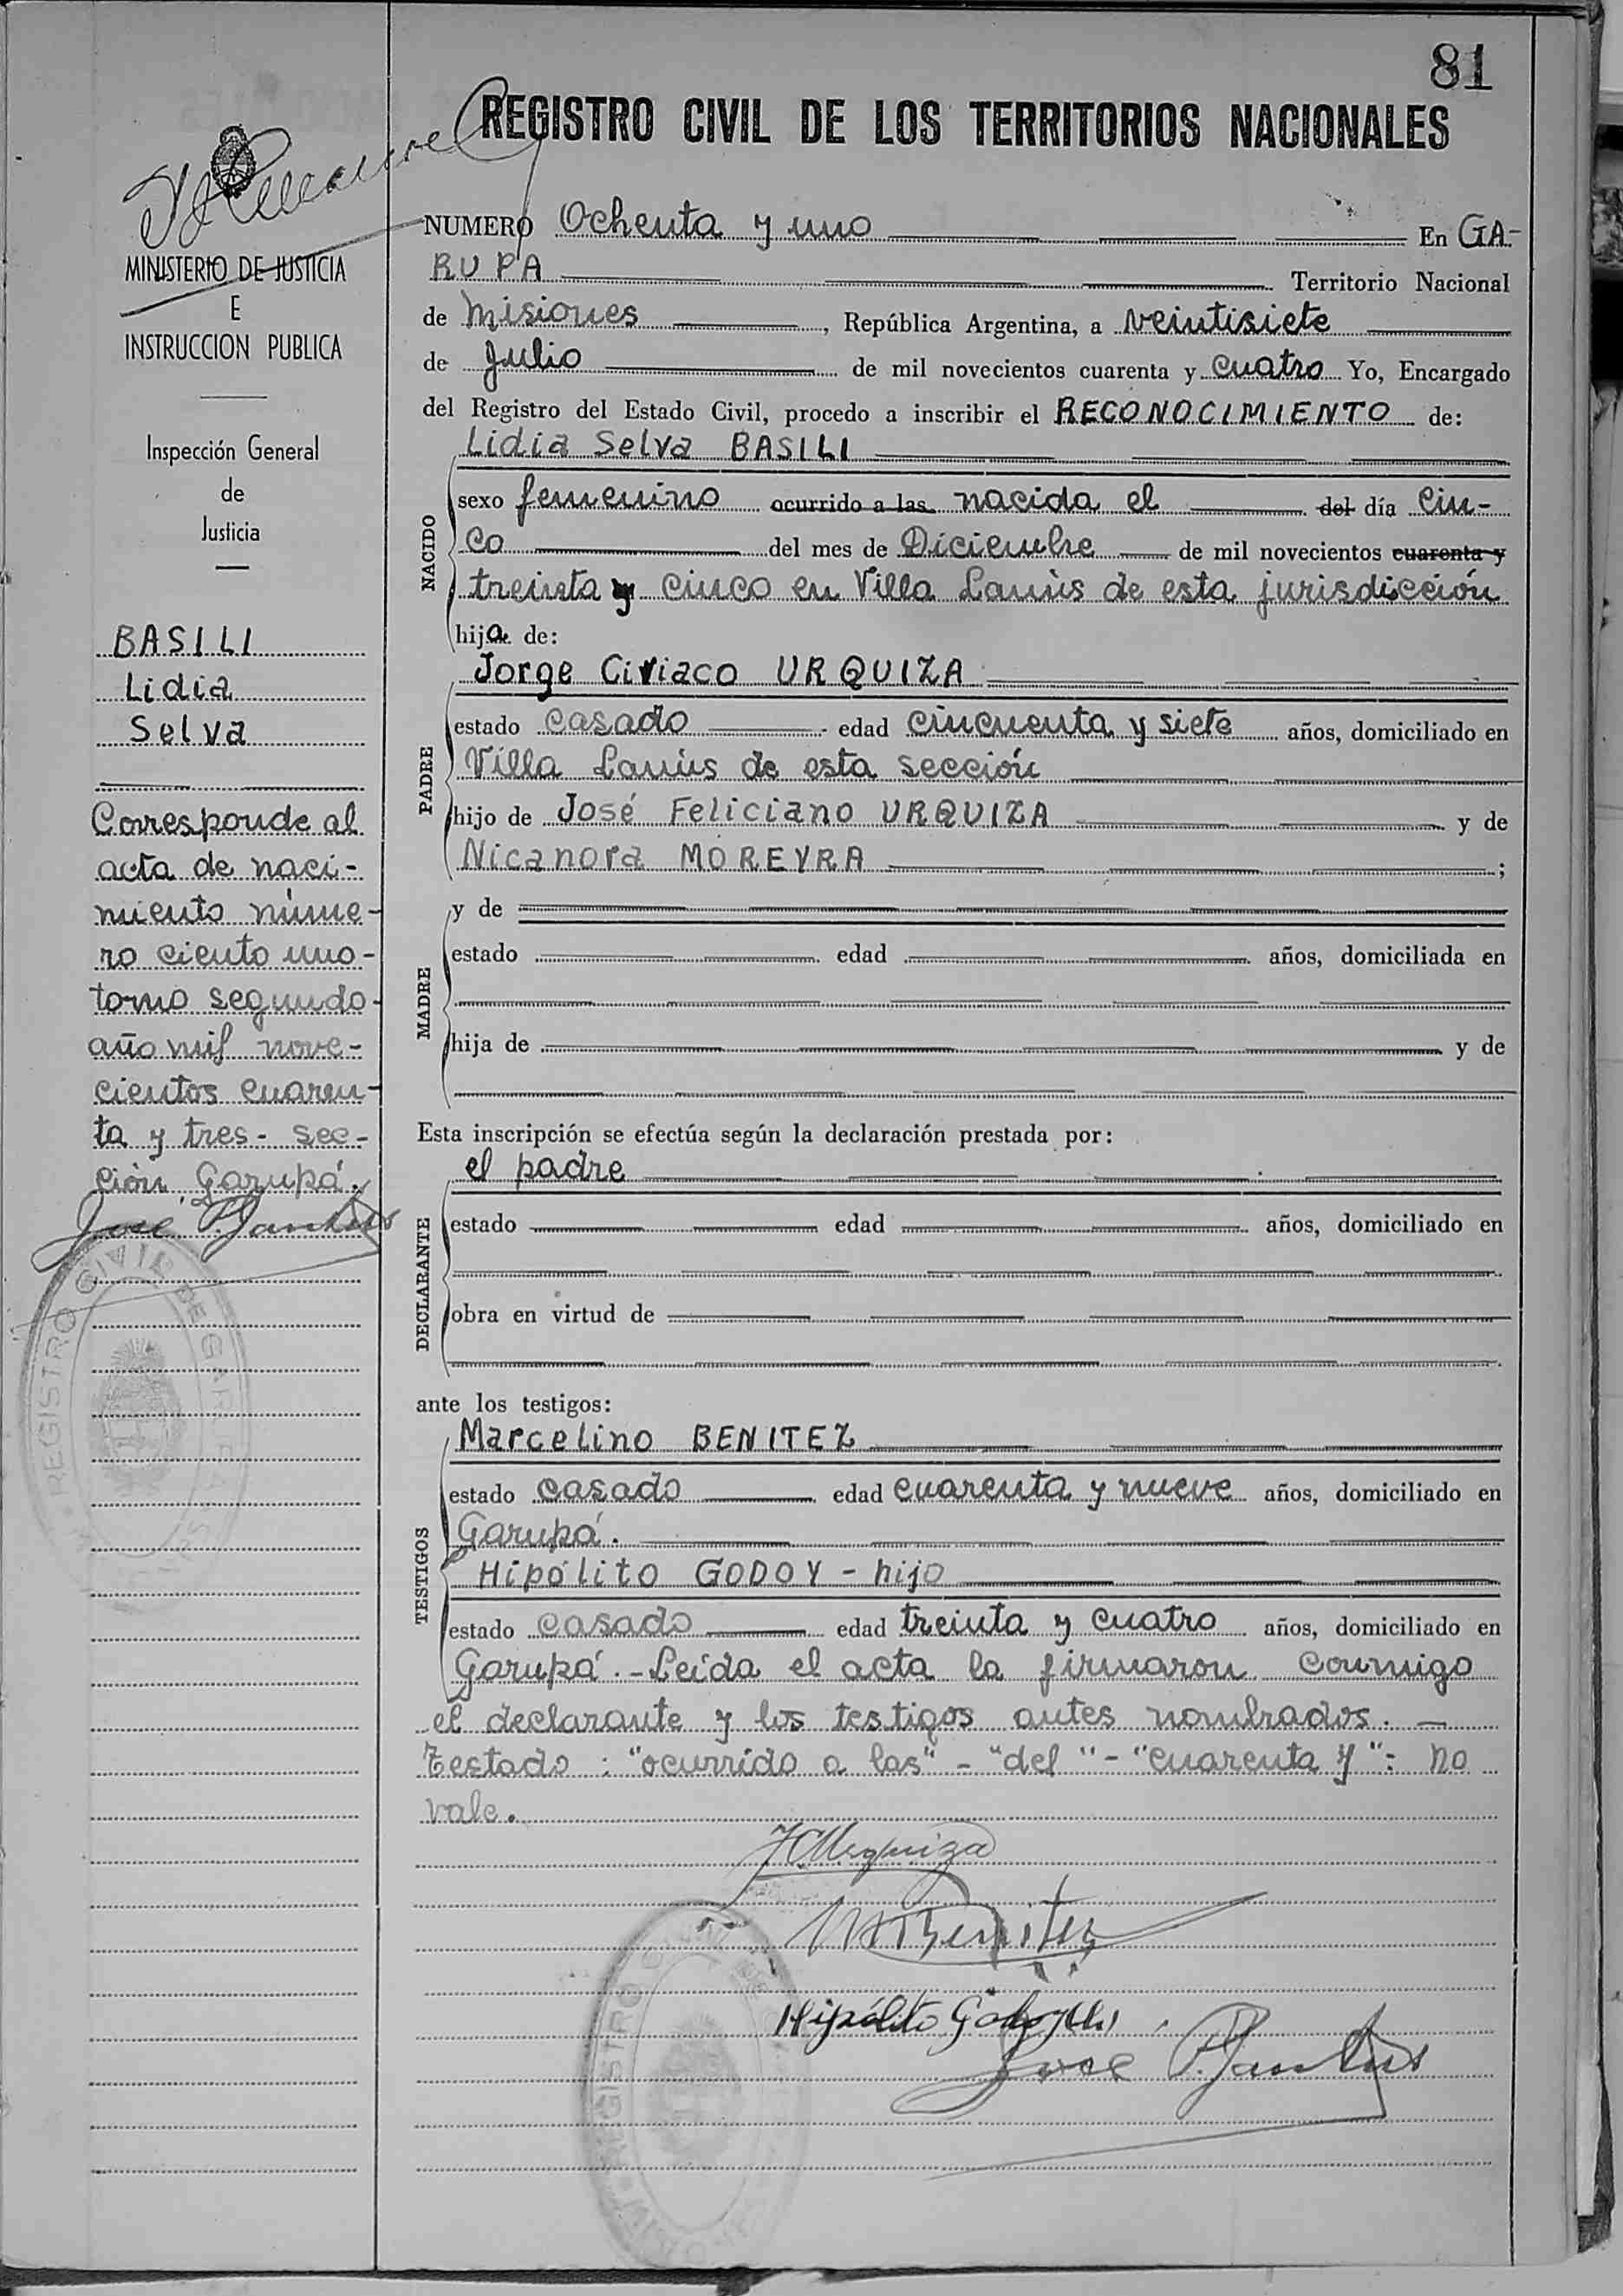 81
REGISTRO CIVIL DE LOS TERRITORIOS NACIONALES
MINISTERIO DE JUSTICIA
E
INSTRUCCION PUBLICA
Inspección General
de
Justicia
BASILI
Lidia
Selva
Corresponde al
acta de naci-
miento núme-
ro ciento uno-
tomo segundo-
año mil nove-
cientos cuaren-
ta y tres - sec-
ción Garupá.
REGISTRO CIVIL DE GARUPA
NUMERO Ochenta y uno En GA-
RUPA Territorio Nacional
de Misiones, República Argentina, a veintisiete
de Julio de mil novecientos cuarenta y cuatro Yo, Encargado
del Registro del Estado Civil, procedo a inscribir el RECONOCIMIENTO de:
Lidia Selva BASILI
NACIDO
sexo femenino ocurrido a las nacida el del día cin-
co del mes de Diciembre de mil novecientos cuarenta y
treinta y cinco en Villa Lanús de esta jurisdicción
hija de:
Jorge Ciriaco URQUIZA
PADRE
estado casado edad cincuenta y siete años, domiciliado en
Villa Lanús de esta sección
hijo de José Feliciano URQUIZA y de
Nicanora MOREYRA ;
y de
MADRE
estado edad años, domiciliada en
hija de y de
Esta inscripción se efectúa según la declaración prestada por:
el padre
DECLARANTE
estado edad años, domiciliado en
obra en virtud de
ante los testigos:
Marcelino BENITEZ
TESTIGOS
estado casado edad cuarenta y nueve años, domiciliado en
Garupá.
Hipólito GODOY - hijo
estado casado edad treinta y cuatro años, domiciliado en
Garupá. - Leída el acta la firmaron conmigo
el declarante y los testigos antes nombrados. -
Testado : "ocurrido a las" - "del" - "cuarenta y": no
vale.
JCUrquiza
MBenitez
Hipólito Godoy
REGISTRO CIVIL DE